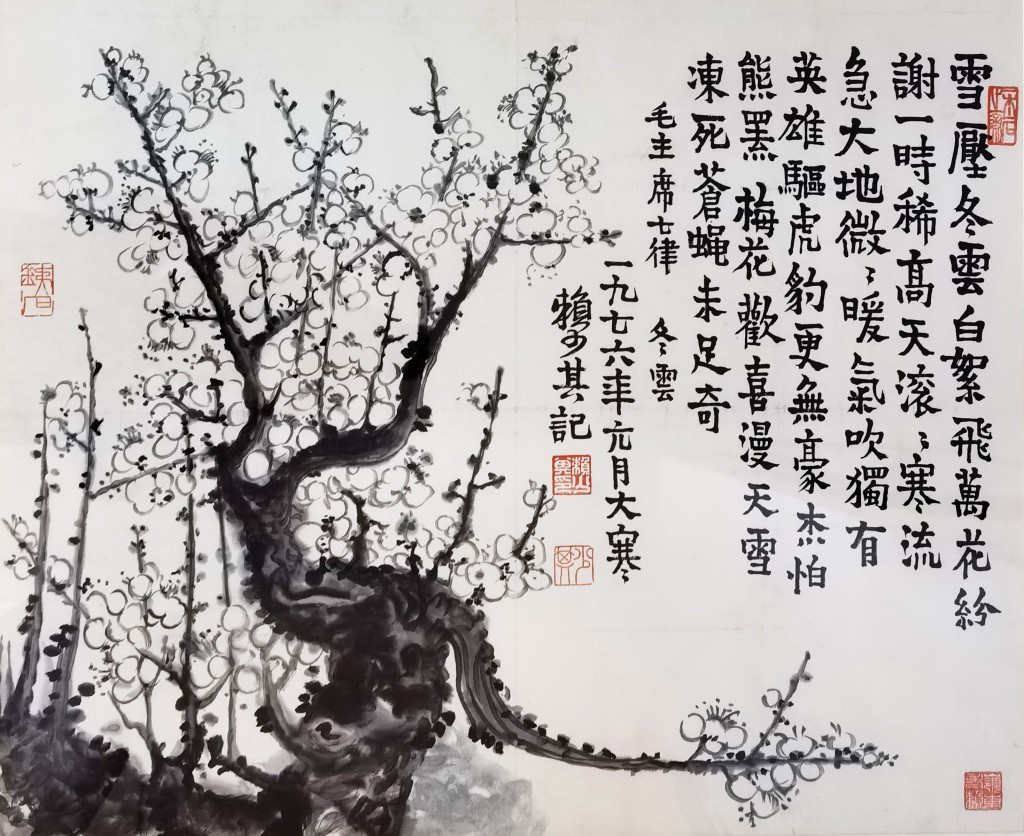 雪壓冬雲白絮飛萬花紛
謝一時稀高天滚〻寒流
急大地微〻暖氣吹獨有
英雄驅虎豹更無豪杰怕
熊罴梅花歡喜漫天雪
凍死蒼蝇未足奇
毛主席七律 冬雲
一九七六年元月大寒
賴少其記